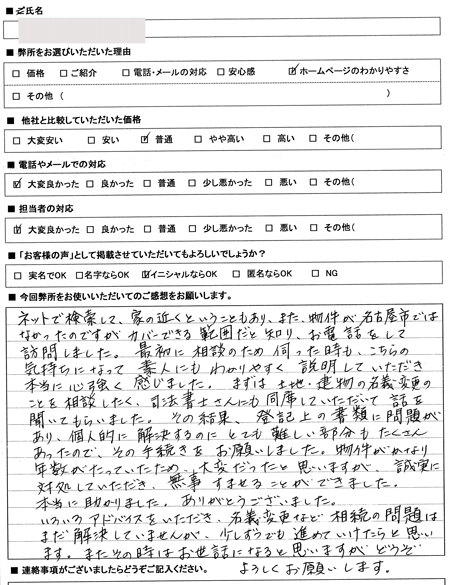 ■ ご氏名
■ 弊所をお選びいただいた理由
□ 価格 □ ご紹介 □ 電話・メールの対応 □ 安心感 ☑ ホームページのわかりやすさ
□ その他（ ）
■ 他社と比較していただいた価格
□ 大変安い □ 安い ☑ 普通 □ やや高い □ 高い □ その他（
■ 電話やメールでの対応
☑ 大変良かった □ 良かった □ 普通 □ 少し悪かった □ 悪い □ その他（
■ 担当者の対応
☑ 大変良かった □ 良かった □ 普通 □ 少し悪かった □ 悪い □ その他（
■ 「お客様の声」として掲載させていただいてもよろしいでしょうか？
□ 実名でOK □ 名字ならOK ☑ イニシャルならOK □ 匿名ならOK □ NG
■ 今回弊所をお使いいただいてのご感想をお願いします。
ネットで検索して、家の近くということもあり、また、物件が名古屋市では
なかったのですが カバーできる範囲だと知り、お電話をして
訪問しました。最初に相談のため伺った時も、こちらの
気持ちになって 素人にもわかりやすく説明していただき
本当に心強く感じました。まずは土地・建物の名義変更の
ことを相談したく、司法書士さんにも同席していただいて話を
聞いてもらいました。その結果、登記上の書類に問題が
あり、個人的に解決するのにとても難しい部分もたくさん
あったので、その手続きをお願いしました。物件がかなり
年数がたっていたため、大変だったと思いますが、誠実に
対処していただき、無事すませることができました。
本当に助かりました。ありがとうございました。
いろいろアドバイスをいただき、名義変更など相続の問題は
まだ解決していませんが、少しずつでも進めていけたらと思い
ます。またその時はお世話になると思いますがどうぞ
よろしくお願いします。
■ 連絡事項がございましたらどうぞご記入ください。